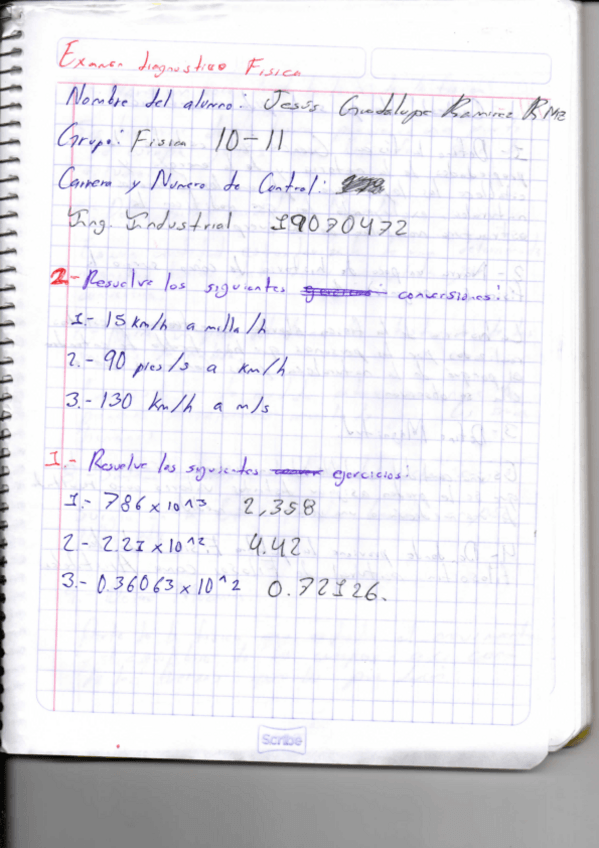 Examen diagnostico Fisica
Nombre del alumno: Jesús Guadalupe Ramirez
Grupo: Fisica 10-11
Carrera y Numero de Control:
Ing. Industrial 19070472
2.- Resuelve los siguientes conversiones:
1.- 15 km/h a milla/h
2.- 90 pies/s a km/h
3.- 130 km/h a m/s
1.- Resuelve los siguientes ejercicios:
1.- 786 x 10^3 2,358
2.- 2.21 x 10^2 4.42
3.- 0.36063 x 10^2 0.72126.
Scribe